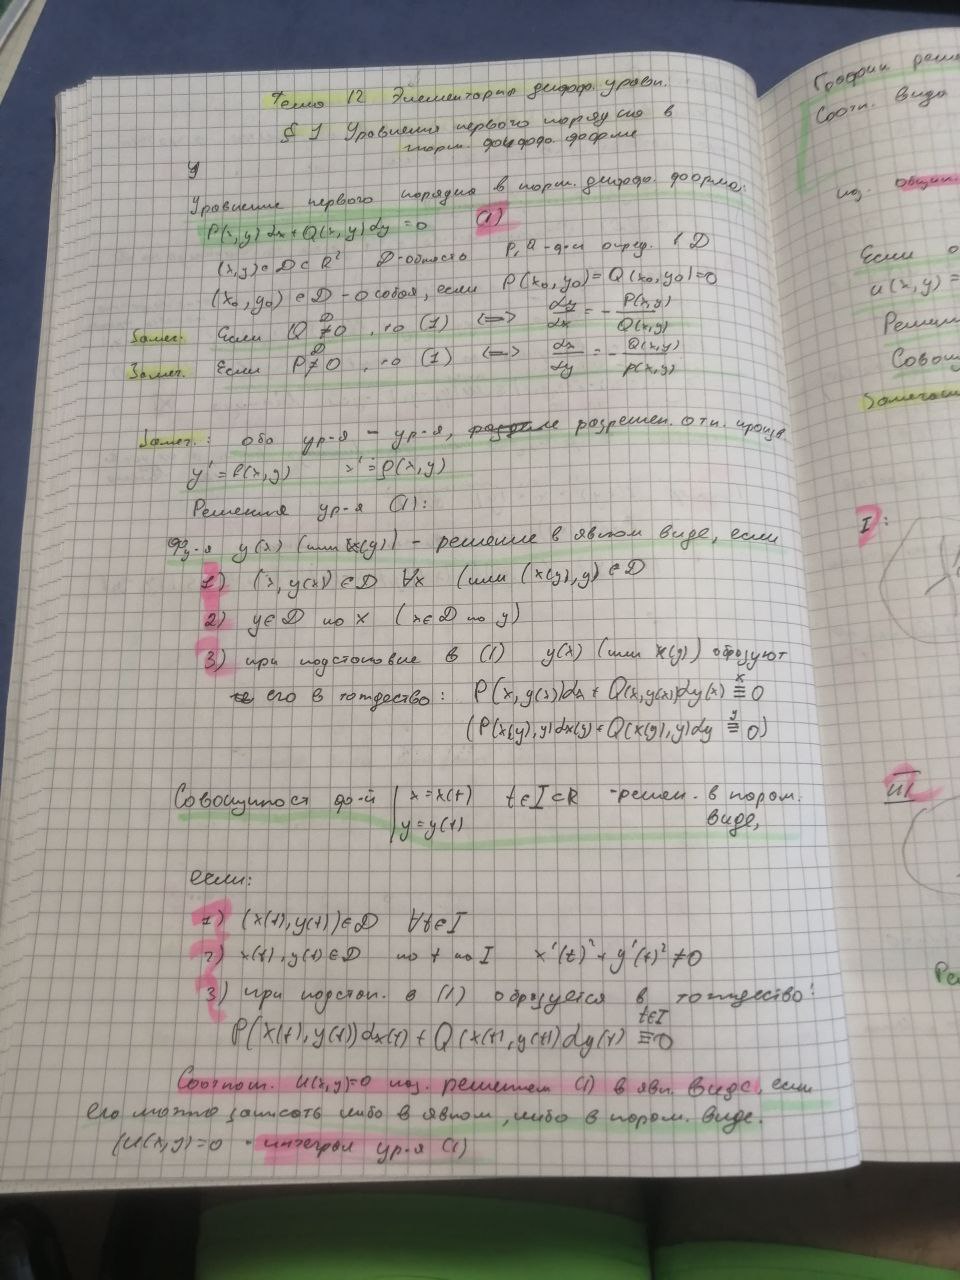 Тема 12 Элементарн. дифф. уравн.
§ 1 Уравнения первого порядка в
норм. дифф. форме
y
Уравнение первого порядка в норм. дифф. форме:
P(x,y)dx + Q(x,y)dy = 0 (1)
(x,y) ∈ D ⊂ R² D-область P, Q - ф-и опред. в D
(x₀, y₀) ∈ D - особая, если P(x₀,y₀) = Q(x₀,y₀) = 0
Замеч. Если Q ≠ 0 (D), то (1) <=> dy/dx = - P(x,y)/Q(x,y)
Замеч. Если P ≠ 0 (D), то (1) <=> dx/dy = - Q(x,y)/P(x,y)
Замеч.: оба ур-я - ур-я, разрешен. отн. произв.
y' = f(x,y) x' = φ(x,y)
Решения ур-я (1):
Фу-я y(x) (или x(y)) - решение в явном виде, если
1) (x, y(x)) ∈ D ∀x (или (x(y), y) ∈ D
2) y ∈ D по x (x ∈ D по y)
3) при подстановке в (1) y(x) (или x(y)) образуют
его в тождество: P(x,y(x))dx + Q(x,y(x))dy(x) ≡ 0 (x)
(P(x(y),y)dx(y) + Q(x(y),y)dy ≡ 0) (y)
Совокупност ф-й { x = x(t) t ∈ I ⊂ R - решен. в парам.
y = y(t) виде,
если:
1) (x(t), y(t)) ∈ D ∀t ∈ I
2) x(t), y(t) ∈ D по t по I x'(t)² + y'(t)² ≠ 0
3) при подстан. в (1) образуется в тождество:
P(x(t), y(t))dx(t) + Q(x(t), y(t))dy(t) ≡ 0 (t∈I)
Соотнош. u(x,y)=0 наз. решением (1) в явн. виде, если
его можно записать либо в явном, либо в парам. виде.
(u(x,y)=0 - интеграл ур-я (1)
Графики реш
Соотн. вида
наз. общим
Если
u(x,y) =
Решени
Совоку
Замечан
I:
III
Ре